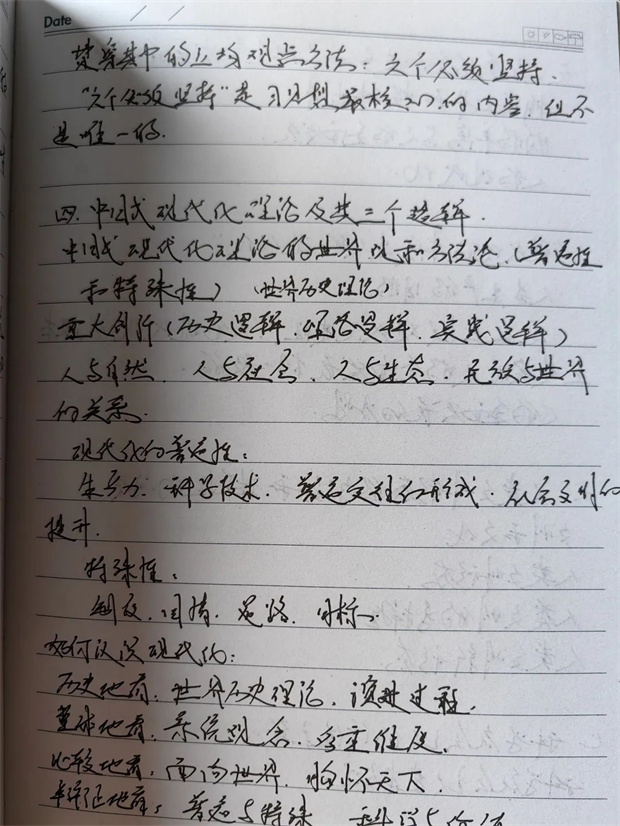 Date
贯穿其中的立场观点方法：六个必须坚持.
“六个必须坚持”是习思想最核心的内容，但不
是唯一的.
四. 中国式现代化理论及其三个逻辑.
中国式现代化理论的世界观和方法论.（普遍性
和特殊性）（世界历史理论）
重大创新（历史逻辑、理论逻辑、实践逻辑）
人与自然、人与社会、人与生态、民族与世界
的关系.
现代化的普遍性：
生产力、科学技术、普遍交往的形成、社会文明的
提升.
特殊性：
制度、国情、道路、目标.
如何认识现代化：
历史地看：世界历史理论，演进过程.
整体地看，系统观念，多重维度.
比较地看：面向世界，胸怀天下.
辩证地看：普遍与特殊 科学与价值